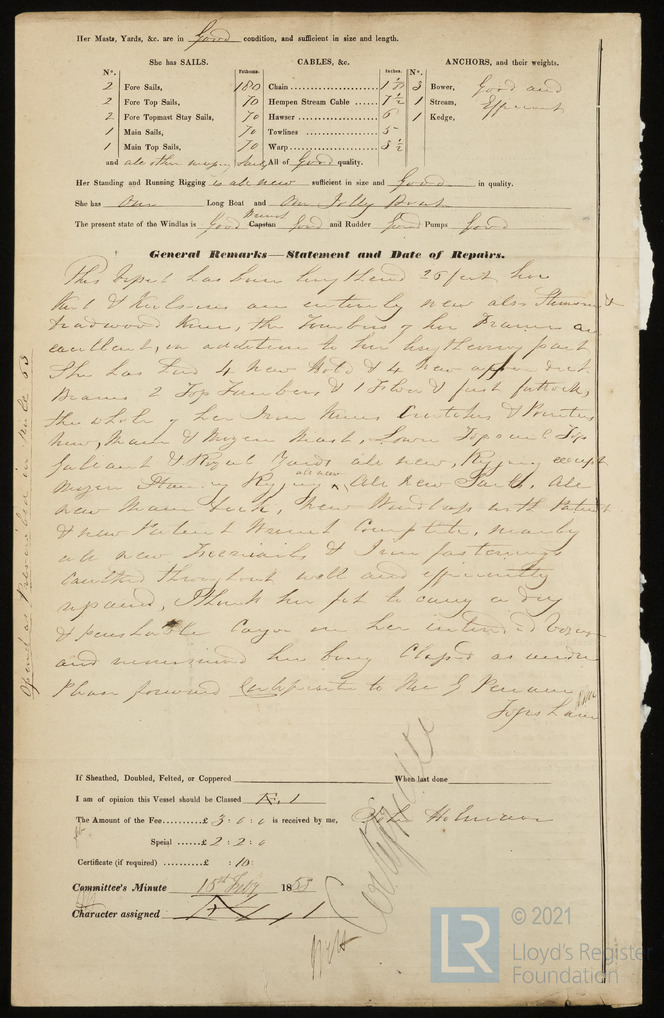 Her Masts, Yards, &c. are in Good condition, and sufficient in size and length.
She has SAILS. CABLES, &c. ANCHORS, and their weights.
N°. Fathoms. Inches. N°.
2 Fore Sails, 180 Chain 1 3 Bower, Good and
2 Fore Top Sails, 70 Hempen Stream Cable 7 1/2 1 Stream, Efficient
2 Fore Topmast Stay Sails, 70 Hawser 6 1 Kedge,
1 Main Sails, 70 Towlines 5
1 Main Top Sails, 70 Warp 3 1/2
and all other Sails, All of Good quality.
Her Standing and Running Rigging is all new sufficient in size and Good in quality.
She has One Long Boat and One Jolly Boat
The present state of the Windlas is Good Capstan Good and Rudder Good Pumps Good
General Remarks—Statement and Date of Repairs.
This Vessel has been lengthened 25 feet her
Keel & Keelsons are entirely new also
Knees, the Timbers of her Frames are
excellent, in addition to her lengthening part
She has had 4 New Hold & 4 New deck
Beams 2 Top Timbers & 1 Floor & first futtock,
the whole of her Iron Knees Crutches & Pointers
New, Main & Mizen Mast, Lower Topsail Top
Gallant & Royal Yards all new, Rigging except
Mizen Standing Rigging all new Sails, all
new Main Deck, New Windlass with Patent
& new Patent Complete, nearly
all new Treenails & Iron fastenings
Caulked throughout well and efficiently
repaired, I think her fit to carry a dry
& perishable Cargo on her intended Voyage
and recommend her being Classed as under
Please forward Certificate to Mr G
If Sheathed, Doubled, Felted, or Coppered When last done
I am of opinion this Vessel should be Classed 1
The Amount of the Fee £ 3 : 0 : 0 is received by me,
Special £ 2 : 2 : 0
Certificate (if required) £ : 10 :
Committee's Minute 15th July 1853
Character assigned 1
Certificate
LR © 2021
Lloyd's Register
Foundation